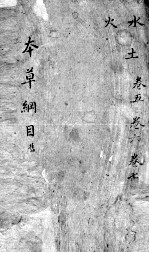 水土
火
卷五 卷六 卷七
本草綱目